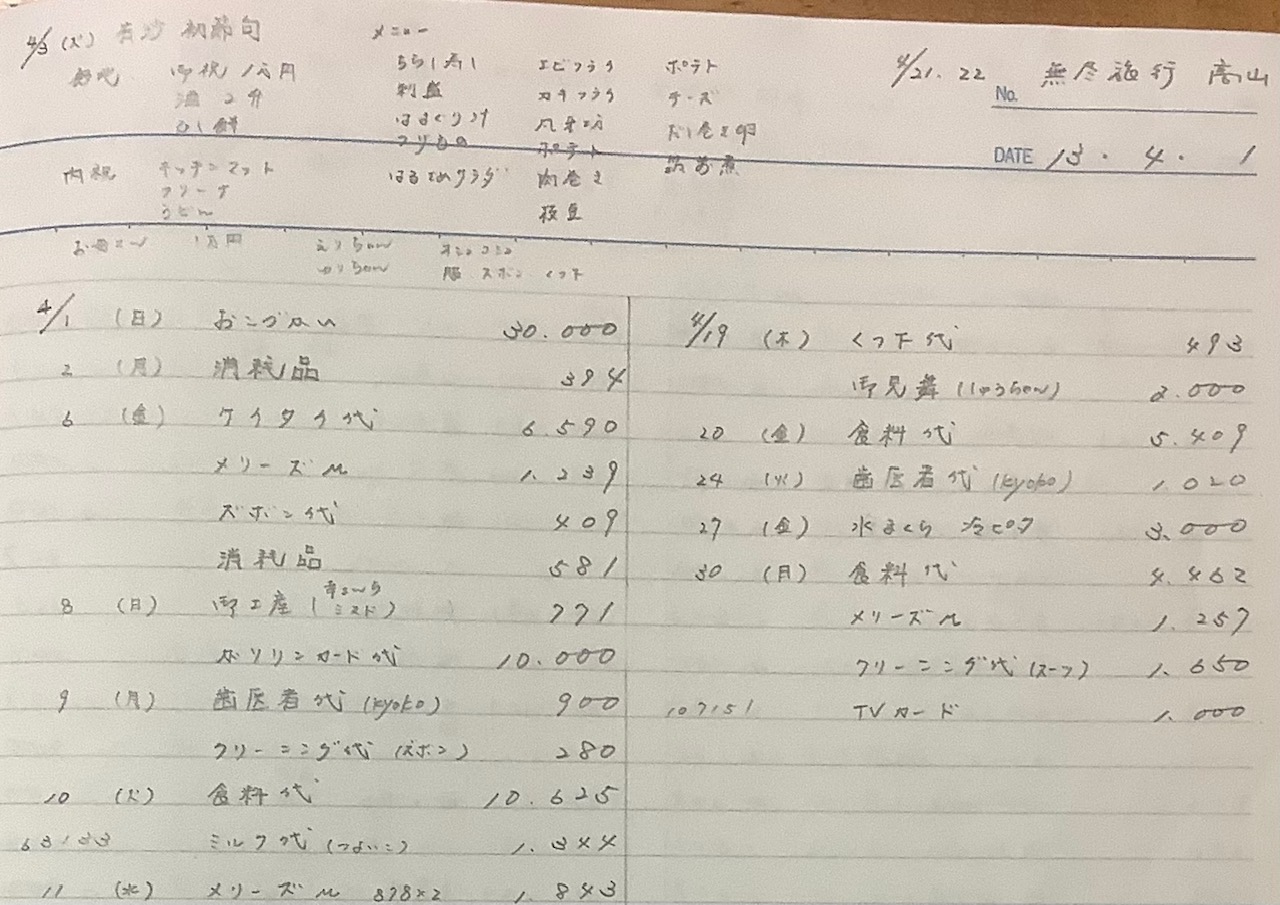 4/3 (火) 有沙 初節句
御祝 1万円
酒 2升
ひし餅
内祝 キッチンマット
クリープ
うどん
メニュー
ちらし寿し
刺盛
はまぐり汁
つりもの
はるさめサラダ
エビフライ
カキフライ
ポテト
肉巻き
枝豆
ポテト
チーズ
だし巻き卵
筑前煮
4/21.22 無尽旅行 高山
No.
DATE 13・4・1
お母さん 1万円
えりちゃん
ゆりちゃん
服 ズボン くつ下
4/1 (日) おこづかい 30.000
2 (月) 消耗品 394
6 (金) ケイタイ代 6.590
メリーズM 1.239
ズボン代 409
消耗品 581
8 (日) 御土産 (ミスド) 771
ガソリンカード代 10.000
9 (月) 歯医者代 (kyoko) 900
クリーニング代 (ズボン) 280
10 (火) 食料代 10.625
63133 ミルク代 (つよいこ) 1.344
11 (水) メリーズM 878×2 1.843
4/19 (木) くつ下代 493
御見舞 (しゅうちゃん) 2.000
20 (金) 食料代 5.409
24 (火) 歯医者代 (kyoko) 1.020
27 (金) 水まくら 冷ピタ 3.000
30 (月) 食料代 4.462
メリーズM 1.257
クリーニング代 (スーツ) 1.650
107151 TVカード 1.000